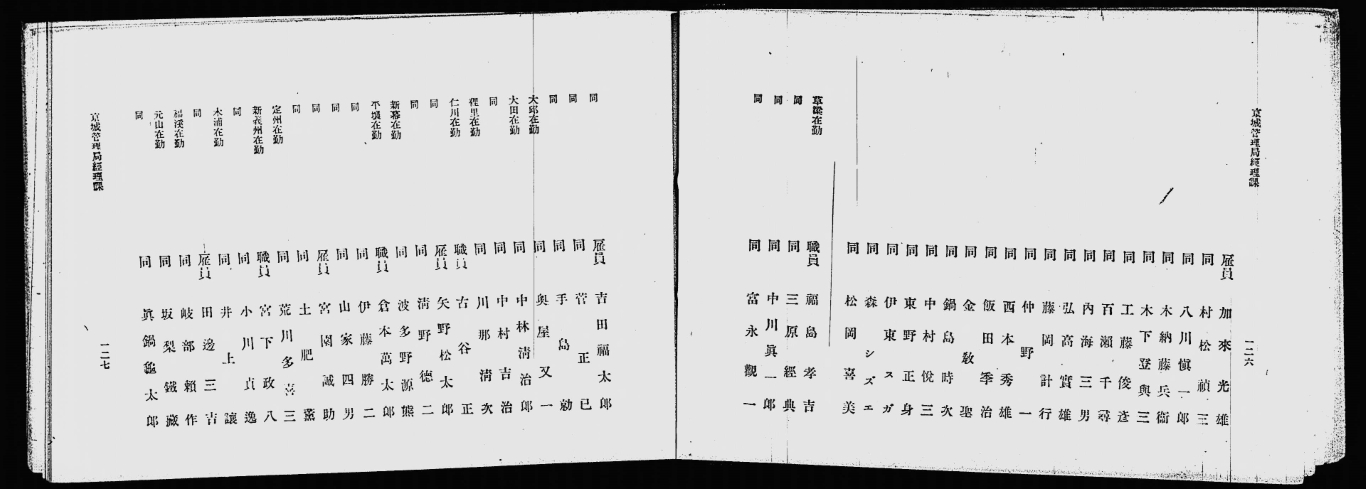 京城管理局經理課
一二六
雇員 加來光雄
同 村松禎三
同 八川愼一郎
同 木納藤兵衞
同 木下登與三
同 工藤俊彦
同 百瀨千尋
同 內海三男
同 弘高實雄
同 藤岡計行
同 仲野一
同 西本秀雄
同 飯田季治
同 金敎聖
同 鍋島時次
同 中村悅三
同 東野正身
同 伊東スガ
同 森シズエ
同 松岡喜美
草梁在勤 職員 福島孝吉
同 同 三原經典
同 同 中川眞一郎
同 同 富永觀一
同 雇員 吉田福太郎
同 同 菅正已
同 同 手島勍
大邱在勤 同 奧屋又一
大田在勤 同 中林淸治郎
同 同 中村吉治
裡里在勤 同 川那淸次
仁川在勤 職員 古谷正
同 雇員 矢野松太郎
同 同 淸野德二
新幕在勤 同 波多野源熊
平壤在勤 職員 倉本萬太郎
同 同 伊藤勝二
同 同 山家四男
同 雇員 宮園誠助
同 同 土肥薰
定州在勤 同 荒川多喜三
新義州在勤 職員 宮下政八
同 同 小川貞逸
木浦在勤 同 井上讓
同 雇員 田邊三吉
福溪在勤 同 岐部賴作
元山在勤 同 坂梨鐵藏
同 同 眞鍋龜太郎
京城管理局經理課
一二七